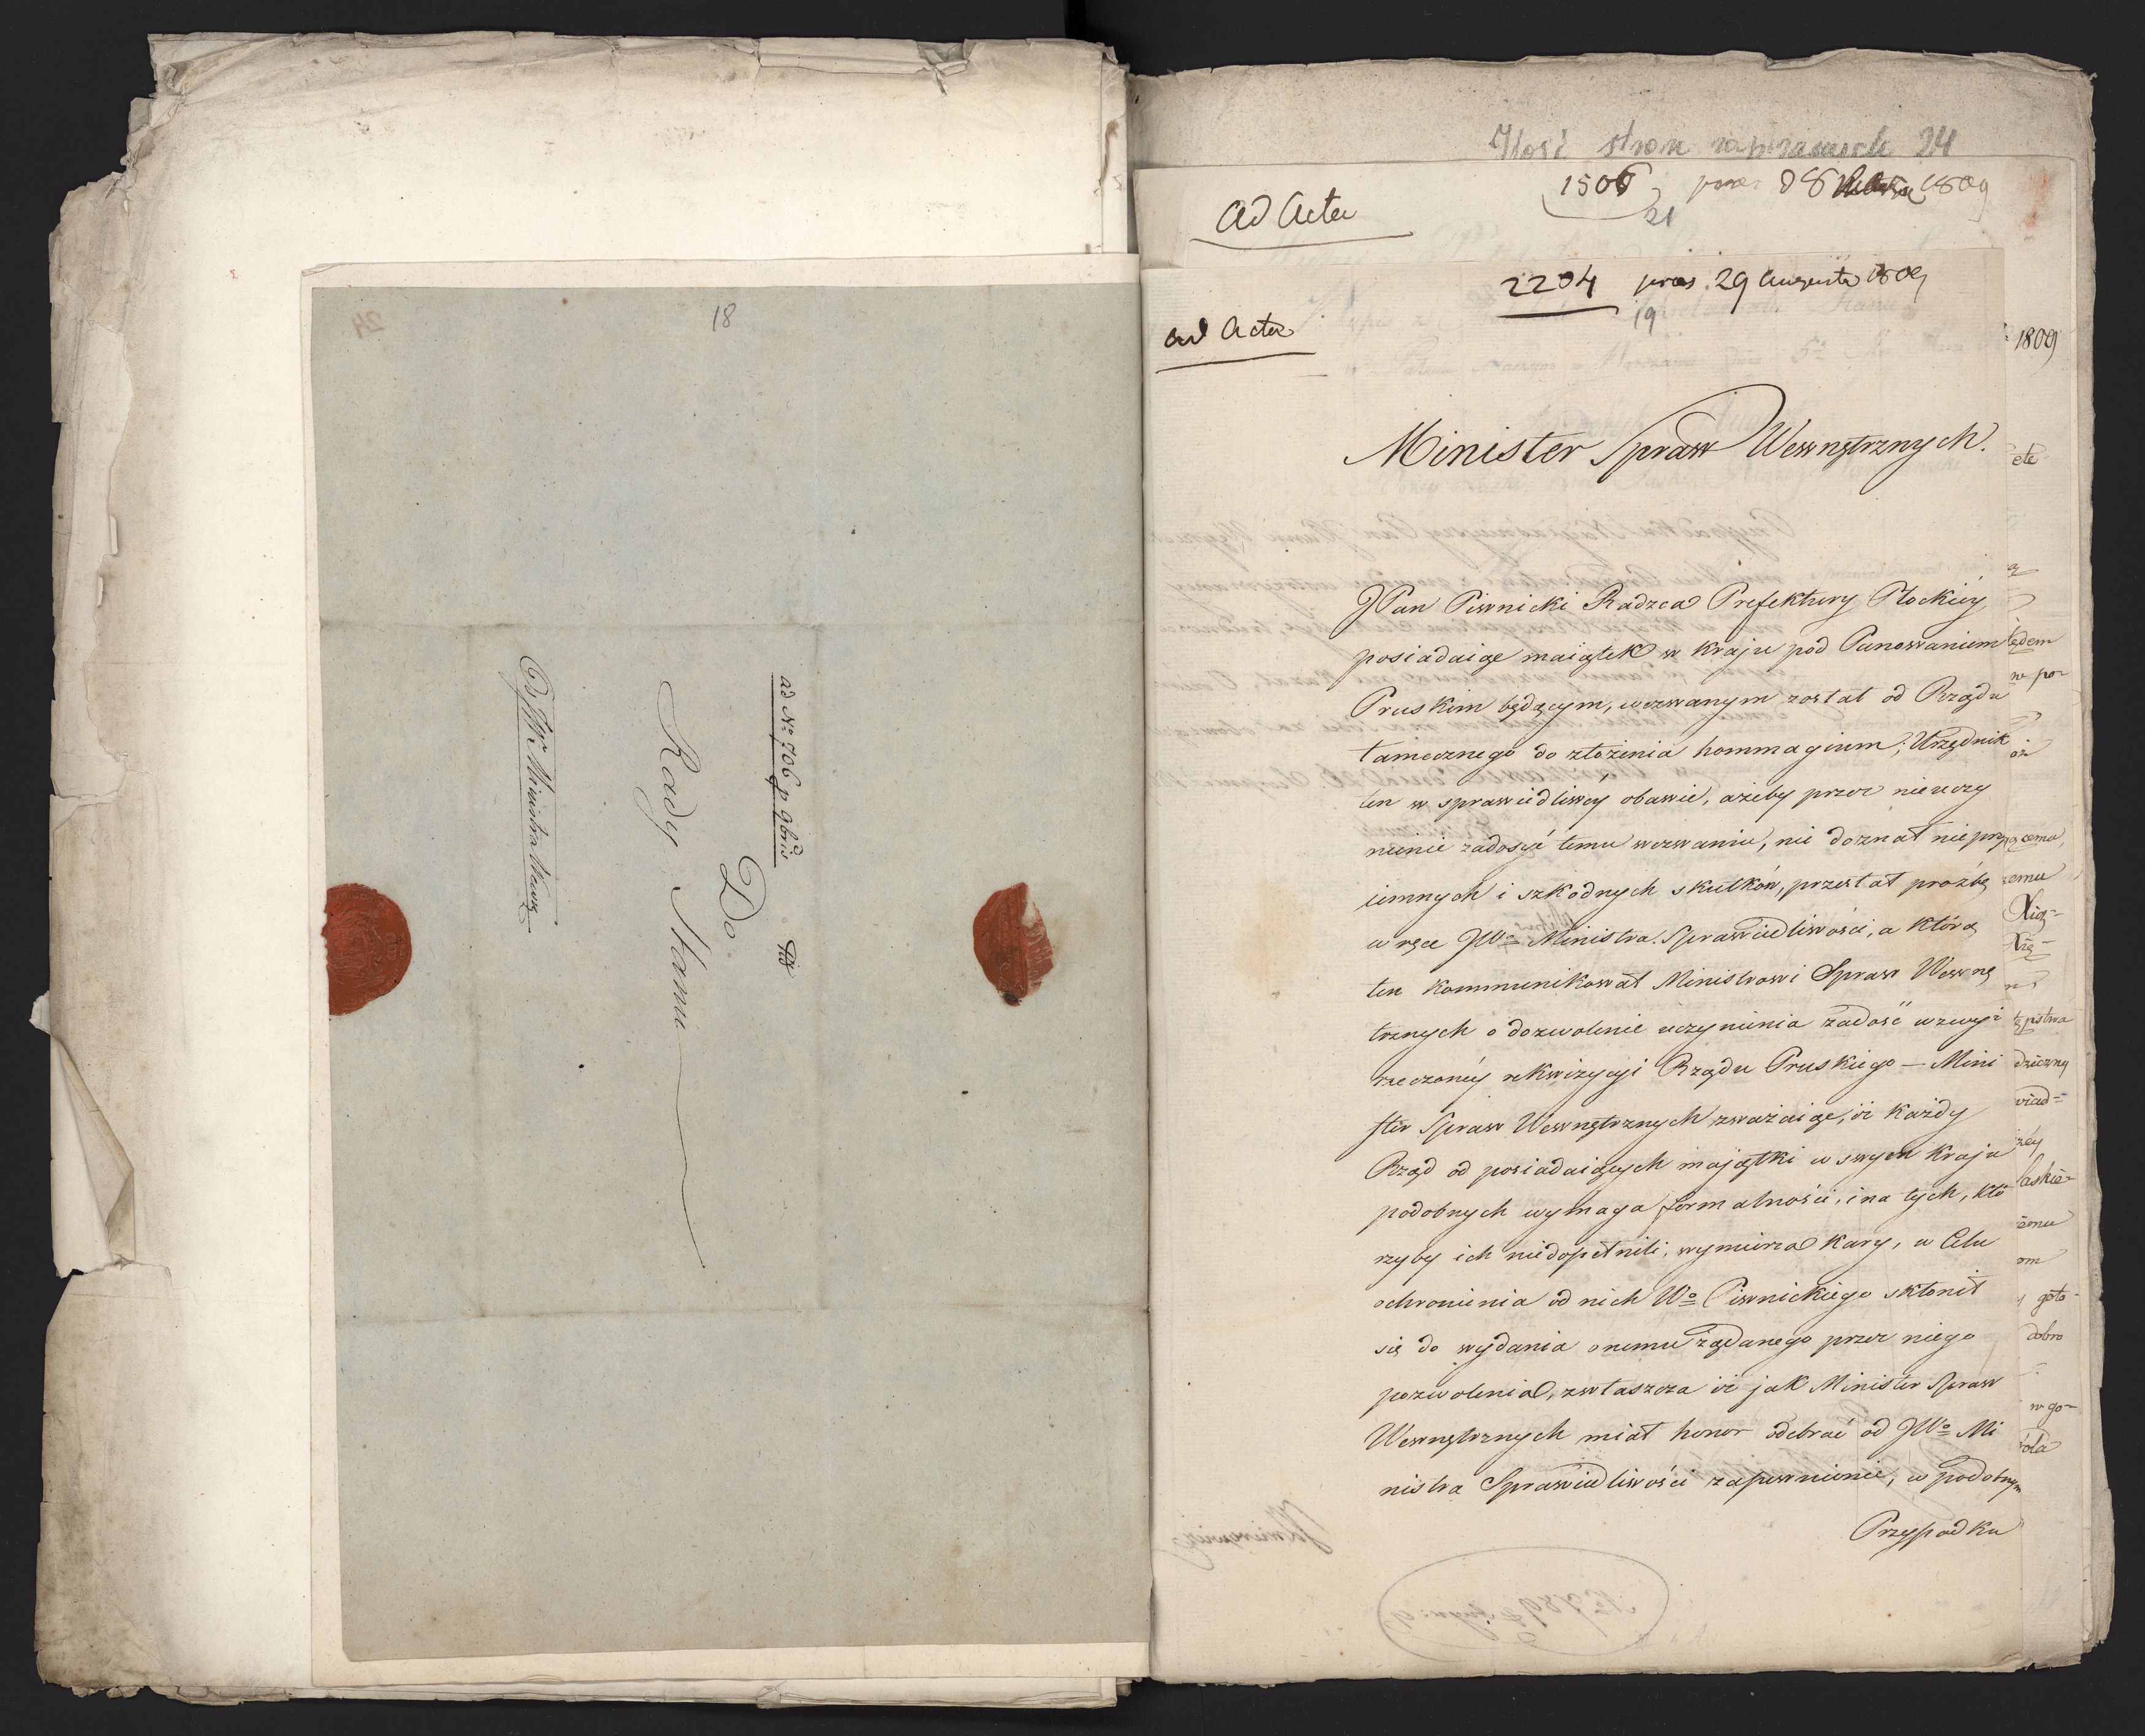 18
24
ad Nr. 706 p 9bris
Do
Rady Stanu
Ilość stron zapisanych 24
Ad Acta
1506
21
1809
2204 praes. 29 Augusta 1809
19
ad Acta
1809
Minister Spraw Wewnętrznych.
JPan Piwnicki Radzca Prefektury Płockiéy
posiadaiąc maiątek w kraju pod Panowaniem
Pruskim będącym, wezwanym został od Rządu
tamecznego do złożenia hommagium; Urzędnik
ten w sprawiedliwéy obawie, ażeby przez nieuczy
nienie zadosyć temu wezwaniu, nie doznał nieprzy
iemnych i szkodnych skutków, przesłał proźbę
w ręce JWo Ministra Sprawiedliwości, a którą
ten kommunikował Ministrowi Spraw Wewnę
trznych o dozwolenie uczynienia zadość wzwyż
rzeczonéy rekwizycyi Rządu Pruskiego — Mini
ster Spraw Wewnętrznych zważaiąc, iż każdy
Rząd od posiadaiących majątki w swym kraju
podobnych wymaga formalności, i na tych, któ
rzyby ich niedopełnili, wymierza kary, w Celu
ochronienia od nich Wo Piwnickiego skłonił
się do wydania onemu żądanego przez niego
pozwolenia, zwłaszcza iż jak Minister Spraw
Wewnętrznych miał honor odebrać od JWo Mi
nistra Sprawiedliwości zapewnienie, w podobnym
Przypadku